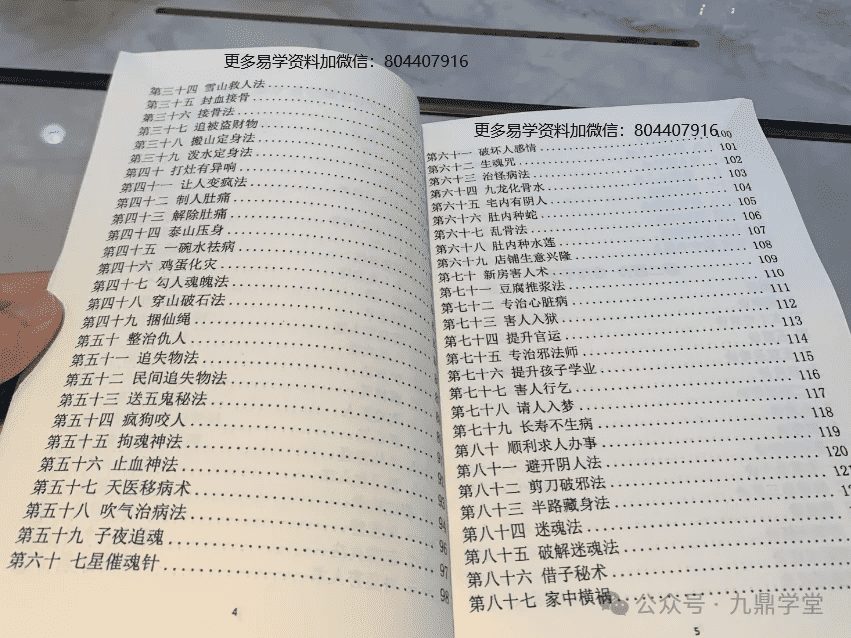 更多易学资料加微信：804407916
第三十四 雪山救人法
第三十五 封血接骨
第三十六 接骨法
第三十七 追被盗财物
第三十八 搬山定身法
第三十九 泼水定身法
第四十 打灶有异响
第四十一 让人变疯法
第四十二 制人肚痛
第四十三 解除肚痛
第四十四 泰山压身
第四十五 一碗水祛病
第四十六 鸡蛋化灾
第四十七 勾人魂魄法
第四十八 穿山破石法
第四十九 捆仙绳
第五十 整治仇人
第五十一 追失物法
第五十二 民间追失物法
第五十三 送五鬼秘法
第五十四 疯狗咬人
第五十五 拘魂神法
第五十六 止血神法
第五十七 天医移病术
第五十八 吹气治病法
第五十九 子夜追魂
第六十 七星催魂针 98
4
更多易学资料加微信：804407916
第六十一 破坏人感情 100
第六十二 生魂咒 101
第六十三 治怪病法 102
第六十四 九龙化骨水 103
第六十五 宅内有阴人 104
第六十六 肚内种蛇 105
第六十七 乱骨法 106
第六十八 肚内种水莲 107
第六十九 店铺生意兴隆 108
第七十 新房害人术 109
第七十一 豆腐推浆法 110
第七十二 专治心脏病 111
第七十三 害人入狱 112
第七十四 提升官运 113
第七十五 专治邪法师 114
第七十六 提升孩子学业 115
第七十七 害人行乞 116
第七十八 请人入梦 117
第七十九 长寿不生病 118
第八十 顺利求人办事 119
第八十一 避开阴人法 120
第八十二 剪刀破邪法 121
第八十三 半路藏身法
第八十四 迷魂法
第八十五 破解迷魂法
第八十六 借子秘术
第八十七 家中横祸
公众号·九鼎学堂
5